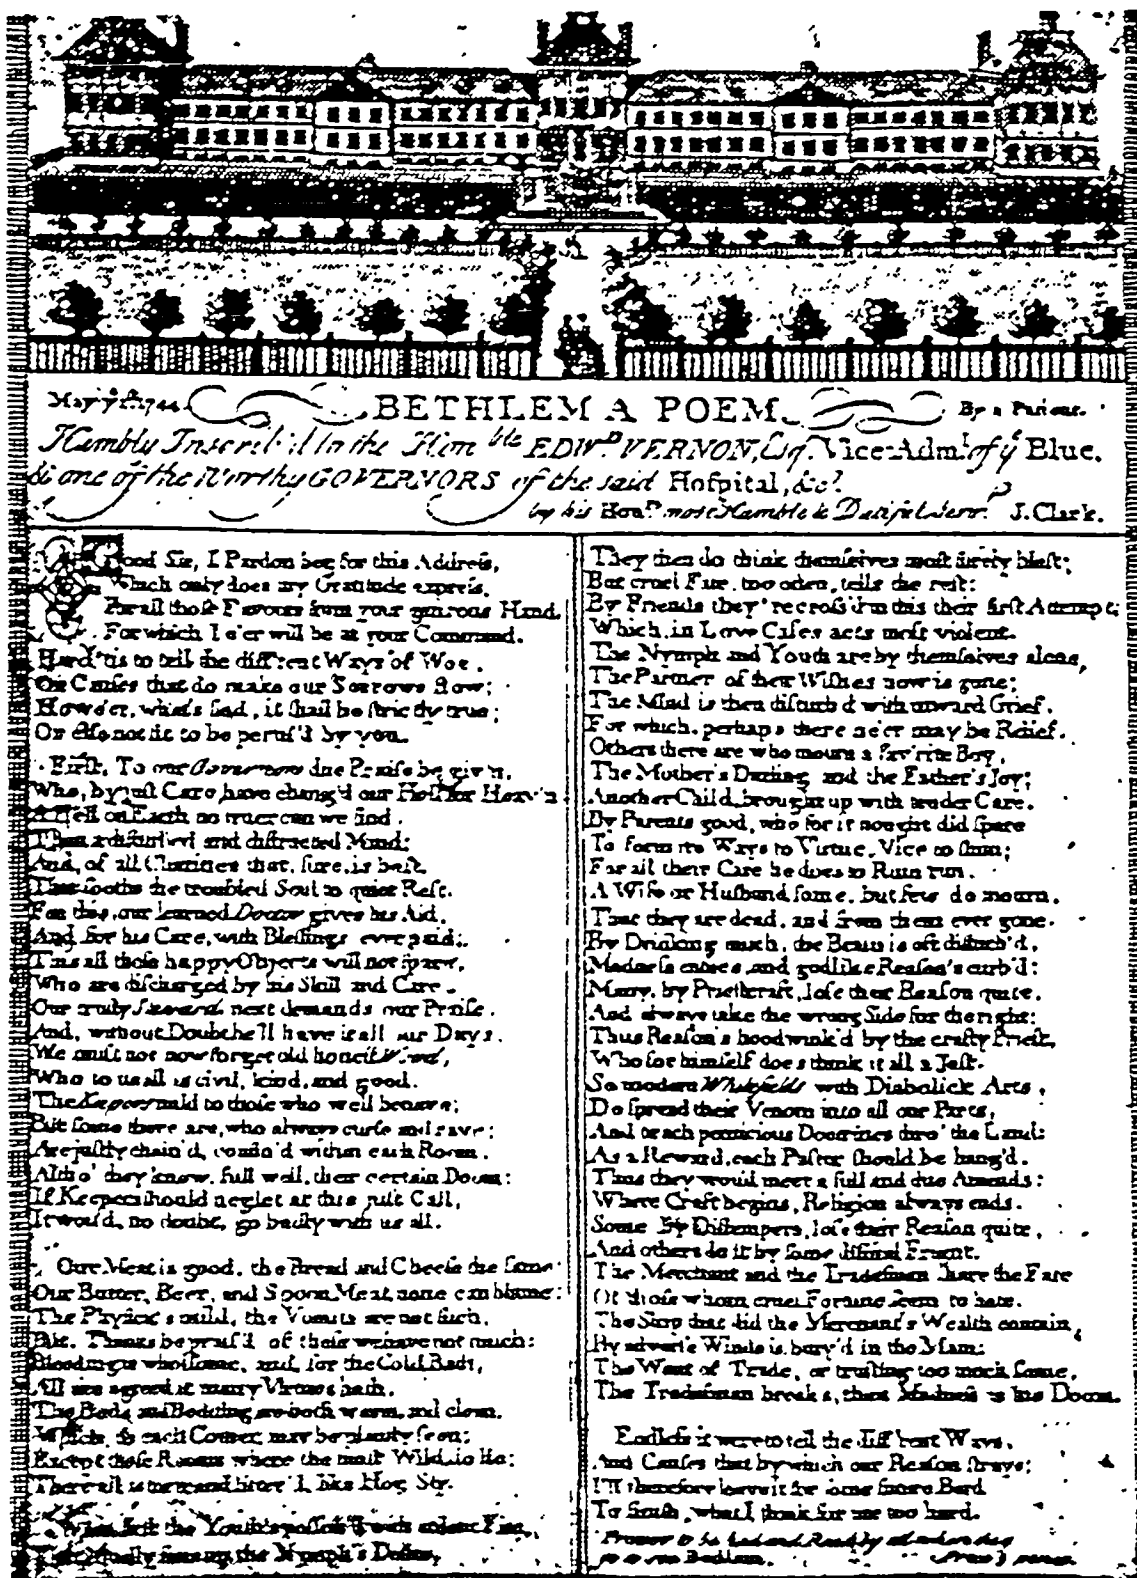 May yᵉ 7ᵗʰ 1744. BETHLEM A POEM. By a Patient.
Humbly Inscrib'd to the Honᵇˡᵉ EDWᴰ. VERNON, Esqʳ. Vice-Admˡ. of yᵉ Blue,
& one of the Worthy GOVERNORS of the said Hoſpital, &cᵃ.
by his Honʳˢ. most Humble & Dutiful Servᵗ. J. Clark.
Good Sir, I Pardon beg for this Addreſs,
Which only does my Gratitude expreſs,
For all thoſe Favours from your gen'rous Hand,
For which I e'er will be at your Command.
Hard 'tis to tell the diff'rent Ways of Woe,
Or Cauſes that do make our Sorrows flow;
Howe'er, what's ſaid, it ſhall be ſtrictly true;
Or elſe not fit to be perus'd by you.
Firſt, To our Governors due Praiſe be giv'n,
Who, by juſt Care, have chang'd our Hell for Heav'n
A Hell on Earth no truer can we find,
Than a diſturbed and diſtracted Mind:
And, of all Charities that, ſure, is beſt,
That ſooths the troubled Soul to quiet Reſt.
For this, our learned Doctor gives his Aid,
And for his Care, with Bleſſings ever paid;
This all thoſe happy Objects will not ſpare,
Who are diſcharged by his Skill and Care.
Our truly Steward next demands our Praiſe,
And, without Doubt, he'll have it all our Days.
We muſt not now forget old honeſt Wood,
Who to us all is civil, kind, and good.
The Keepers mild to thoſe who well behave;
But ſome there are, who always curſe and rave:
Are juſtly chain'd, confin'd within each Room,
Altho' they know, full well, their certain Doom:
If Keepers ſhould neglect at this juſt Call,
It wou'd, no doubt, go badly with us all.
Our Meat is good, the Bread and Cheeſe the ſame
Our Butter, Beer, and Spoon Meat, none can blame:
The Phyſick's mild, the Vomits are not ſuch,
But, Thanks be prais'd of theſe we have not much:
Bleeding is wholſome, and, for the Cold Bath,
All are agreed it many Virtues hath.
The Beds and Bedding are both warm, and clean,
Which, to each Comer, may be plainly ſeen;
Except thoſe Rooms where the moſt Wild do lie;
There all is
When firſt the Youth's poſſeſt with Fire,
the Nymph's Deſire,
They then do think themſelves moſt ſurely bleſt;
But cruel Fate, too often, tells the reſt:
By Friends they're croſs'd in this their firſt Attempt;
Which, in Love Caſes acts moſt violent.
The Nymph and Youth are by themſelves alone,
The Partner of their Wiſhes now is gone;
The Mind is then diſturb'd with inward Grief,
For which, perhaps there ne'er may be Relief.
Others there are who mourn a fav'rite Boy,
The Mother's Darling and the Father's Joy;
Another Child, brought up with tender Care,
By Parents good, who for it nought did ſpare
To form its Ways to Virtue, Vice to ſhun;
For all their Care he does to Ruin run.
A Wife or Huſband ſome, but few do mourn,
That they are dead, and from them ever gone.
By Drinking much, the Brain is oft diſturb'd,
Madneſs enters, and godlike Reaſon's curb'd:
Many, by Prieſtcraft, loſe their Reaſon quite,
And always take the wrong Side for the right:
Thus Reaſon's hoodwink'd by the crafty Prieſt,
Who for himſelf does think it all a Jeſt.
So modern Whitefields with Diabolick Arts,
Do ſpread their Venom into all our Parts,
And teach pernicious Doctrines thro' the Land:
As a Reward, each Paſtor ſhould be hang'd.
Thus they would meet a full and due Amends:
Where Craft begins, Religion always ends.
Some By Diſtempers, loſe their Reaſon quite,
And others do it by ſome diſmal Fright.
The Merchant and the Tradeſman ſhare the Fate
Of thoſe whom cruel Fortune ſeem to hate.
The Ship that did the Merchant's Wealth contain,
By adverſe Winds is bury'd in the Main:
The Want of Trade, or truſting too much ſome,
The Tradeſman breaks, then Madneſs is his Doom.
Endleſs it were to tell the diff'rent Ways,
And Cauſes that by which our Reaſon ſtrays;
I'll therefore leave it for ſome future Bard
To finiſh, what I think for me too hard.
to be had and Read by all
Bedlam. Price 3 pence.